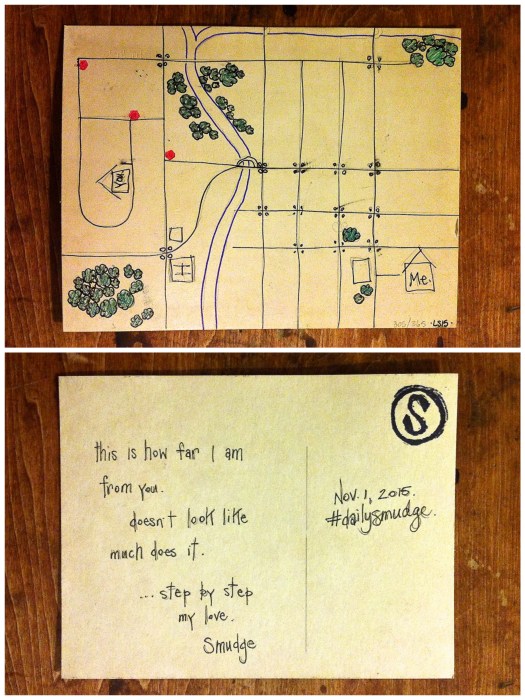 You.
H
Me.
305/365 ·LS15·
this is how far I am
from you.
doesn't look like
much does it.
...step by step
my love.
Smudge
S
Nov. 1, 2015.
#dailysmudge.